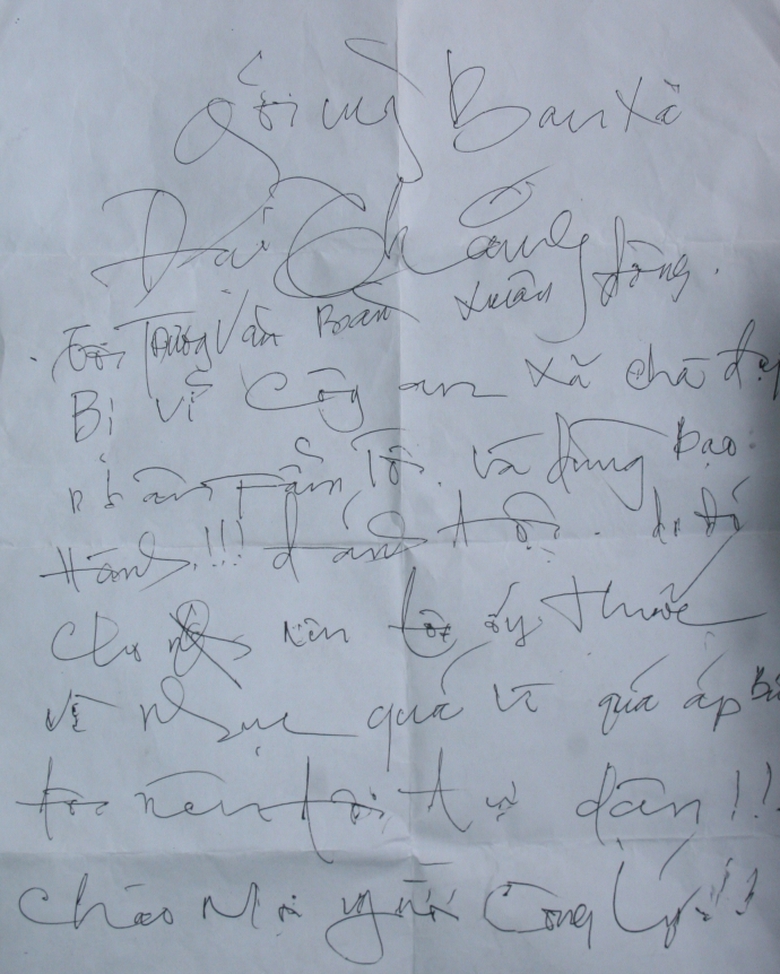 gởi uỷ Ban Xã
Đại thắng
Xuân đồng.
Tôi Trương Văn
Bị vì Công an xã chà đạp
nhân phẩm Tôi. Và dùng bạo
Hành!!! đánh tôi. do đó
Cho nên tôi ấy thuốc
vì nhục quá vì quá áp Bứ
tôi nên tôi tự dận!!!
chào Mọi người Công Lý!!!